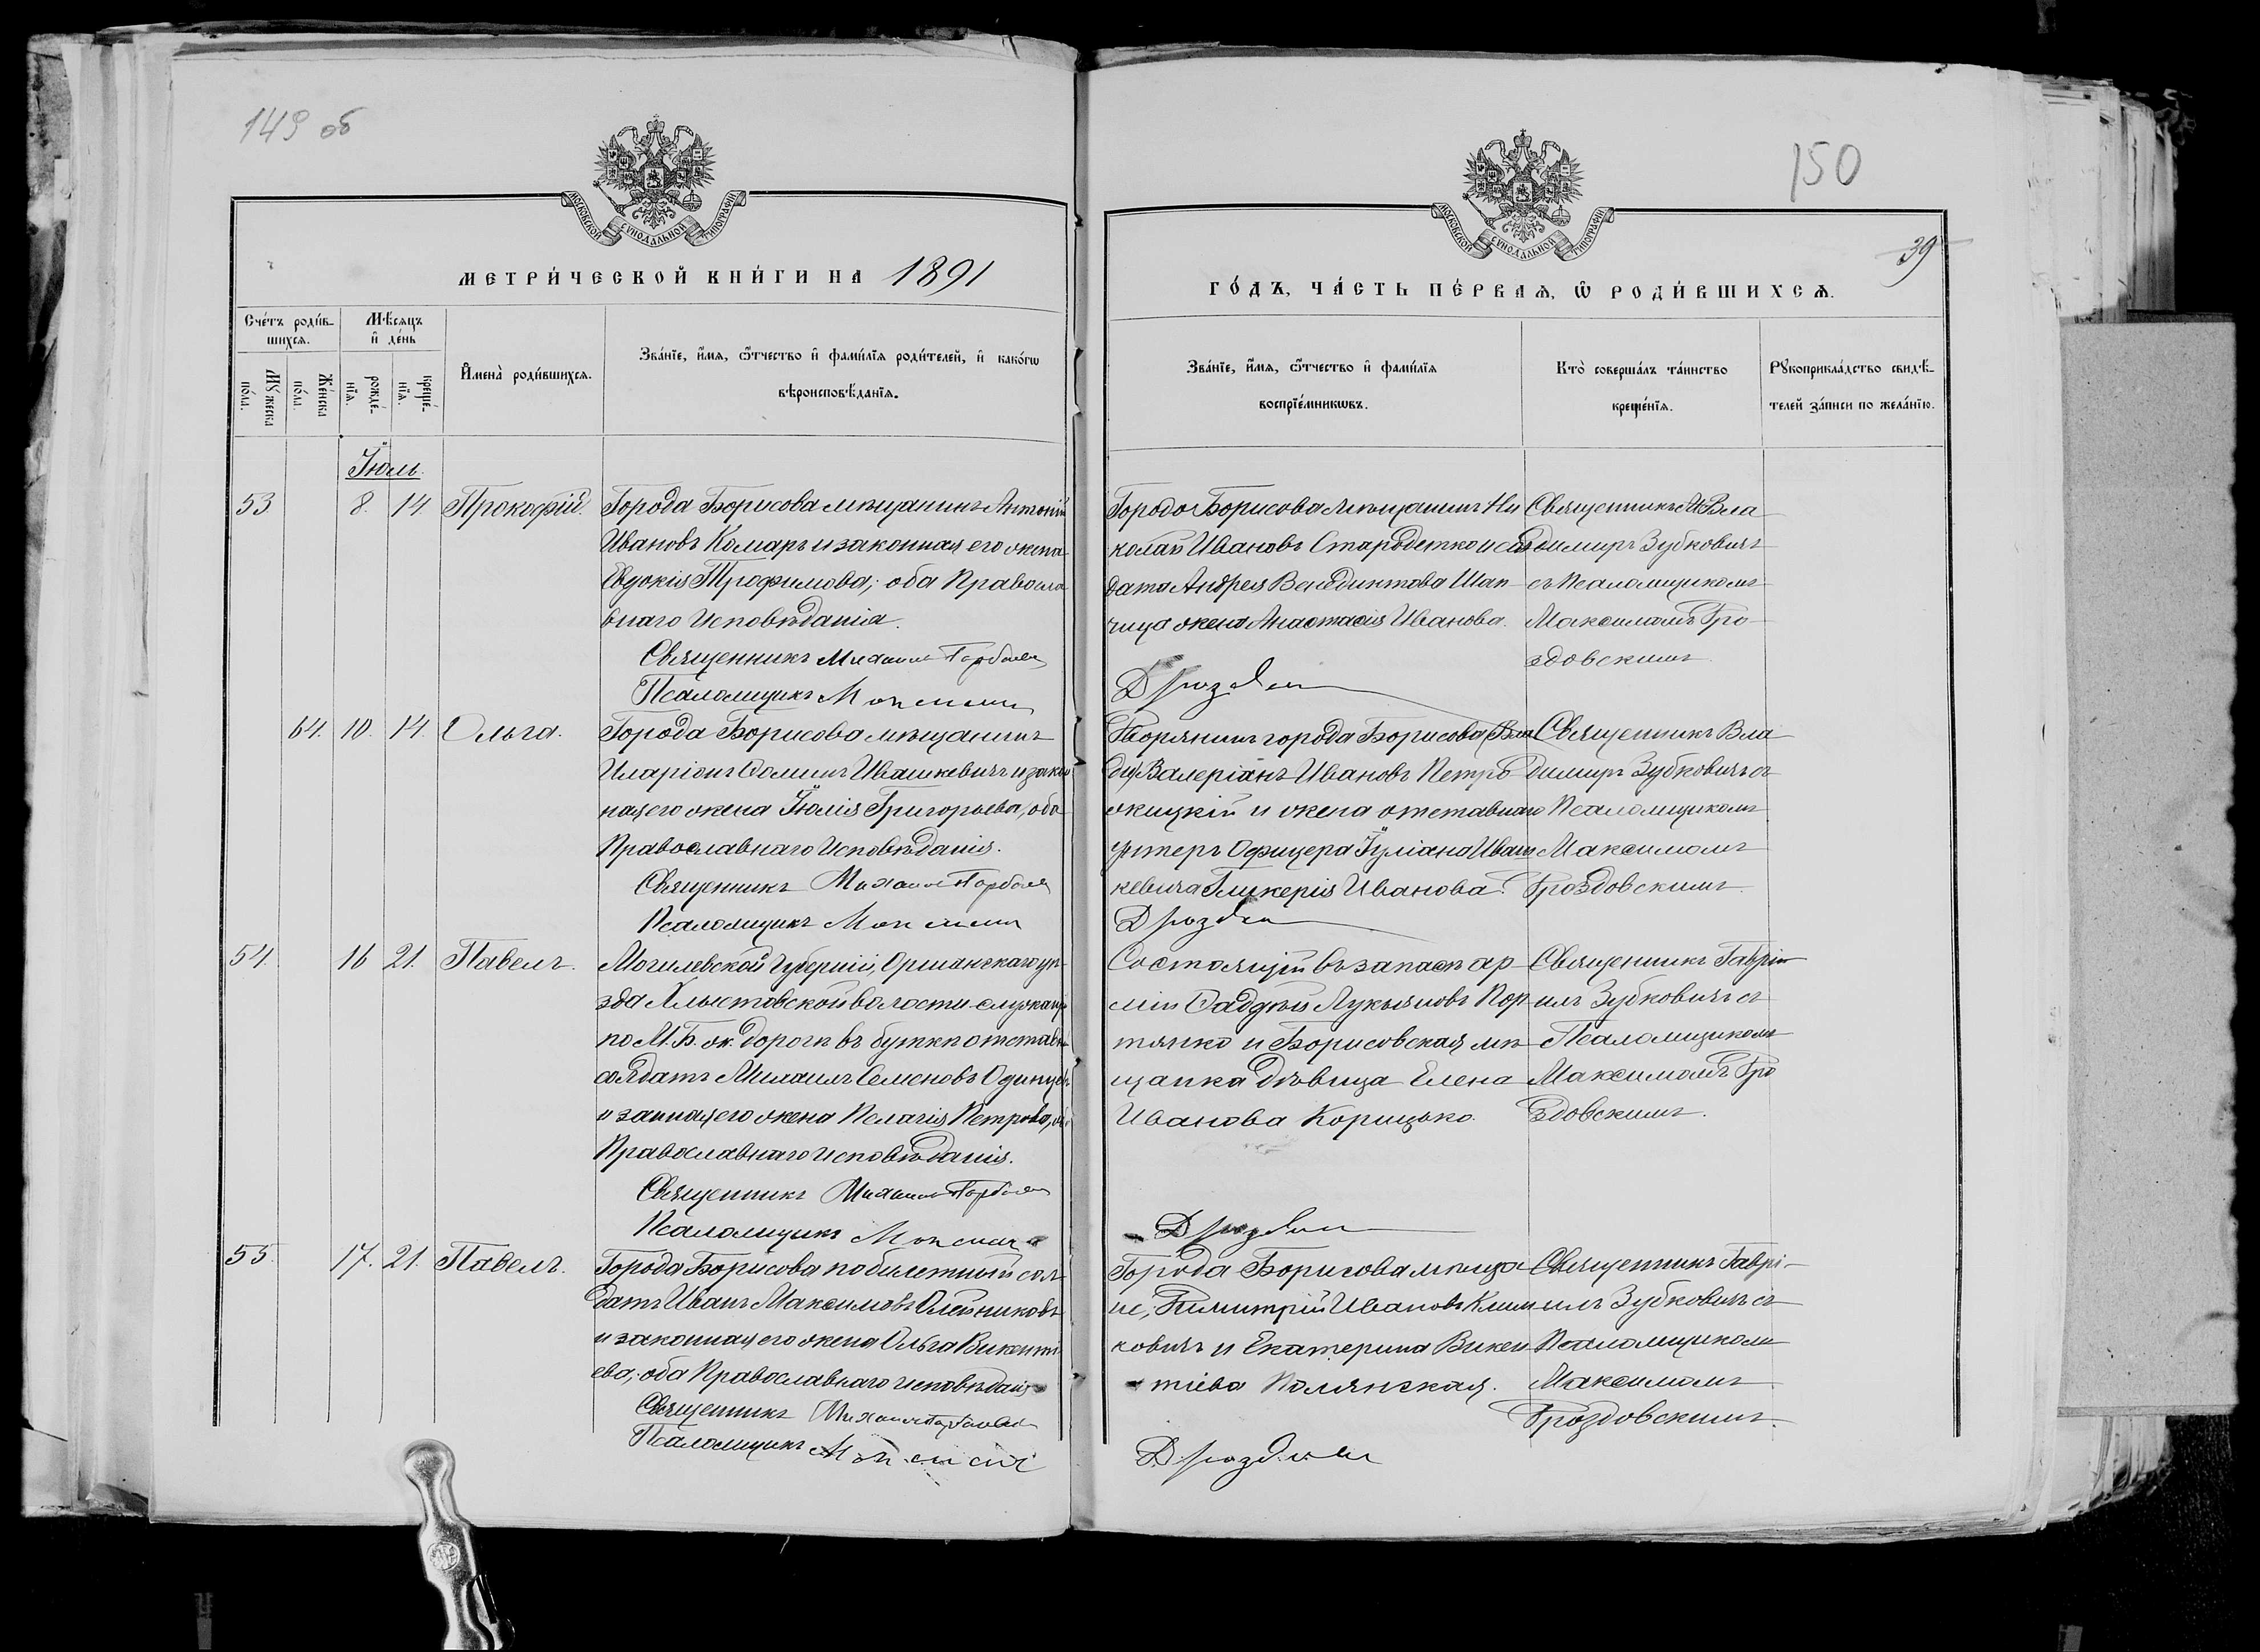 149 об
МОСКОВСКОЙ СѴНОДАЛЬНОЙ ТИПОГРАФІИ
МЕТРИ́ЧЕСКОЙ КНИ́ГИ НА 1891
Сче́тъ роди́в-
шихся.
Мѣ́сяцъ
и҆ де́нь
Мꙋ́жеска
по́ла.
Же́нска
по́ла.
рожде́-
нїѧ.
креще́-
нїѧ.
И҆мена̀ роди́вшихся.
Зва́нїе, и҆́мѧ, ѻ҆́тчество и҆ фами́лїѧ роди́телей, и҆ како́гѡ
вѣроисповѣ́данїѧ.
Іюль.
53. 8. 14 Прокофій.
Города Борисова мѣщанинъ Антоній
Ивановъ Комаръ и законная его жена
Евдокія Трофимова; оба Правосла
внаго Исповѣданія.
Священникъ Михаилъ
Псаломщикъ
64. 10. 14. Ольга.
Города Борисова мѣщанинъ
Иларіонъ Ѳоминъ Ивашкевичъ и закон
ная его жена Юлія Григорьева, оба
Православнаго Исповѣданія.
Священникъ Михаилъ
Псаломщикъ
54. 16 21. Павелъ.
Могилевской губерніи, Оршанскаго уѣ
зда Хлыстовской волости служащ
по М. Б. ж. дороги въ буткѣ отставн
солдатъ Михаилъ Семеновъ Одинцо
и заиная его жена Пелагія Петрова, об
Православнаго исповѣданія.
Священникъ Михаилъ
Псаломщикъ
55. 17. 21. Павелъ.
Города Борисова по билетный сол
датъ Иванъ Максимовъ Олейниковъ
и законная его жена Ольга Викенті
ева, оба Православнаго исповѣданія
Священникъ Михаилъ
Псаломщикъ
150
39
МОСКОВСКОЙ СѴНОДАЛЬНОЙ ТИПОГРАФІИ
ГО́ДЪ, ЧА́СТЬ ПЕ́РВАѦ, Ѡ҆ РОДИ́ВШИХСѦ.
Зва́нїе, и҆́мѧ, ѻ҆́тчество и҆ фами́лїѧ
воспрїе́мникѡвъ.
Кто̀ соверша́лъ та́инство
креще́нїѧ.
Рꙋкоприкла́дство свидѣ́-
телей за́писи по жела́нїю.
Города Борисова мѣщанинъ Ни
колай Ивановъ Стародетко и сол
дата Андрея Венедиктова Шап
чица жена Анастасія Иванова.
Священникъ Вла
димиръ Зубковичъ
съ Псаломщикомъ
Максимомъ Гро-
здовскимъ
Дворянинъ города Борисова
Валеріанъ Ивановъ Петро
жицкій и жена отставнаго
унтеръ Офицера Іуліана Иваш
кевича Гликерія Иванова.
Священникъ Вла
димиръ Зубковичъ съ
Псаломщикомъ
Максимомъ
Гроздовскимъ
Состоящій въ запасѣ ар
міи Ѳаддѣй Лукьяновъ Пор
тянко и Борисовская мѣ
щанка дѣвица Елена
Иванова Корицько
Священникъ Гаврі
илъ Зубковичъ съ
Псаломщикомъ
Максимомъ Гро
здовскимъ.
Города Борисова мѣща
не, Димитрій Ивановъ Клим
ковичъ и Екатерина Викен
тіева Полянская.
Священникъ Гаврі-
илъ Зубковичъ съ
Псаломщикомъ
Максимомъ
Гроздовскимъ.